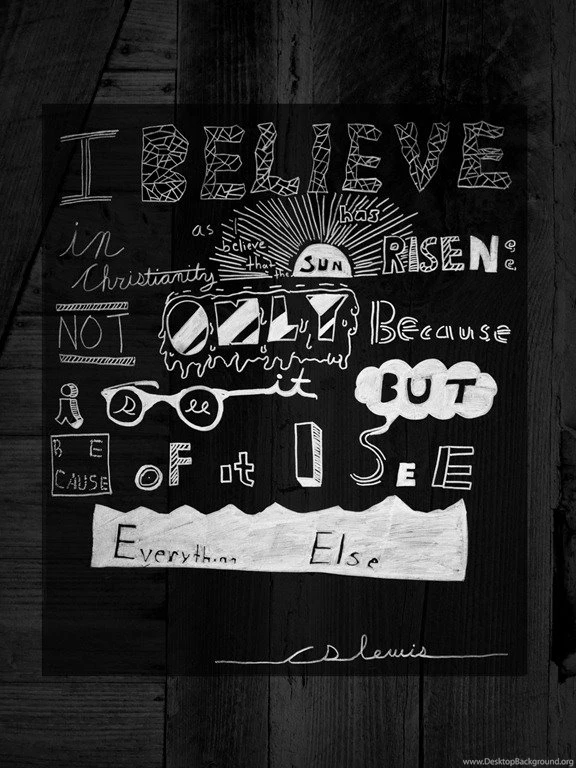 I BELIEVE
in
Christianity
as I
believe
that
the
SUN
has
RISEN:
NOT ONLY Because
i see it BUT
BE
CAUSE
OF it I SEE
Everything Else
CS lewis
www.DesktopBackground.org